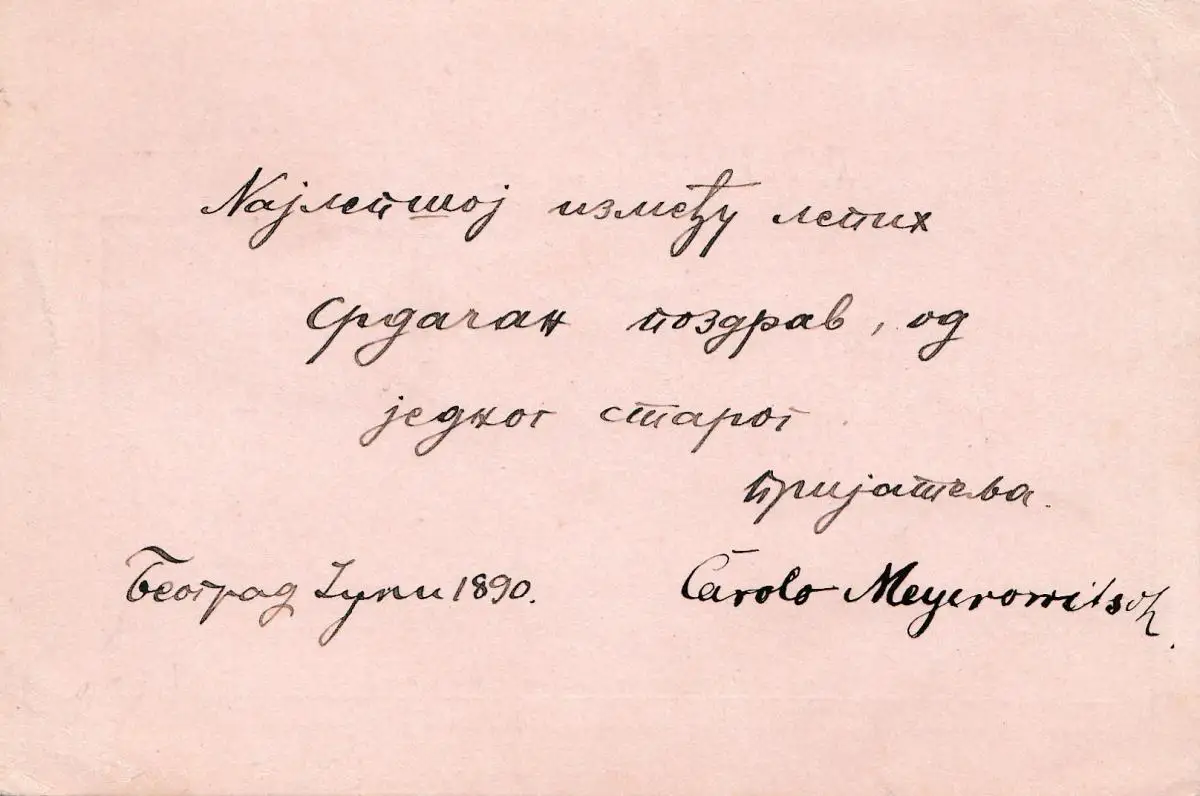 Најлепшој између лепих
Срдачан поздрав, од
једног старог
пријатеља.
Београд Јуни 1890.
Carolo Meyerowitsch.